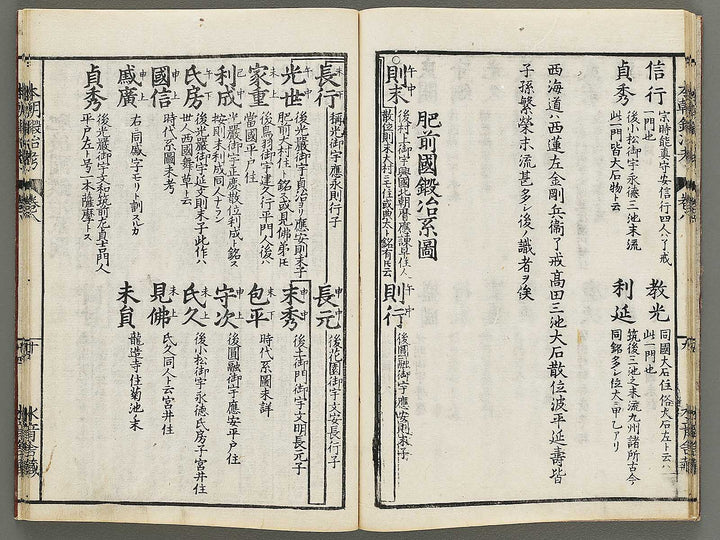 信行
宗時能真守安信行四人了戒
一門也
貞秀
後小松御宇永德三池末流
此一門皆大石物ト云
教光
同國大石住俗大石左ト云
此一門也
利延
筑後三池之末流九州諸所古今
同銘多シ位大甲乙アリ
西海道ハ西蓮左金剛兵衞了戒高田三池大石散位波平延壽皆
子孫繁榮末流甚多シ後ノ識者ヲ俟
肥前國鍛冶系圖
則末
則行
後圓融御宇應安則末子
長行
稱光御宇應永則行子
長元
後花園御宇文安長行子
光世
後光嚴御宇貞治ヨリ應安則末子
肥前大村住ト銘ス或見佛弟
末秀
後土御門御宇文明長元子
家重
後鳥羽御宇建久行平門人後ハ
當國平戸住
包平
時代系圖未詳
利成
光嚴御宇正慶散位利成ト銘ス
按則末利成同人ナラン
守次
後圓融御宇應安平戸住
氏房
後光嚴御宇延文則末子此作ハ
世人西國舞草ト云
氏久
後小松御宇永德氏房子宮井住
國信
時代系圖未考
見佛
氏久同人ト云宮井住
威廣
右同威字モリト訓スルカ
末貞
龍造寺住菊池末
貞秀
後光嚴御宇文和筑前左貞吉門人
平戸左ト号一本薩摩トス